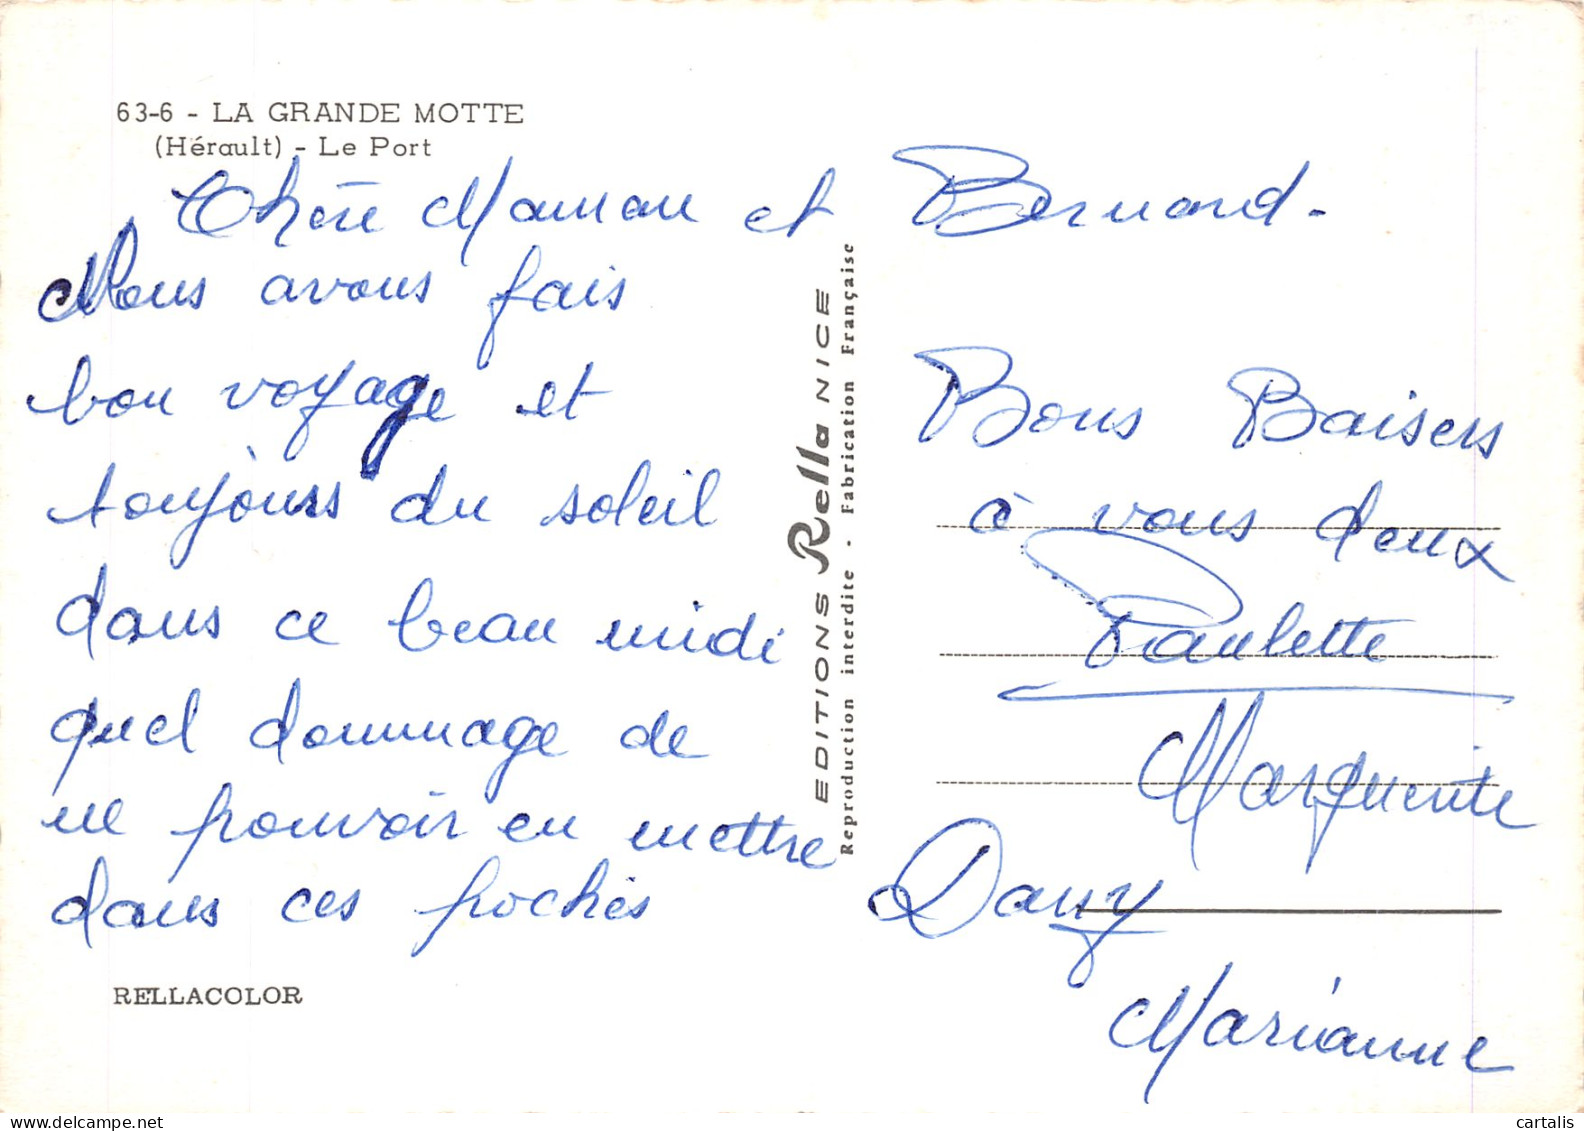 63-6 - LA GRANDE MOTTE
(Hérault) - Le Port
Chère Maman et Bernard -
Nous avons fais
bon voyage et
toujours du soleil
dans ce beau midi
quel dommage de
ne pouvoir en mettre
dans ces poches
RELLACOLOR
EDITIONS Rella NICE
Reproduction interdite - Fabrication Française
Bons Baisers
à vous deux
Paulette
Marguerite
Dany
Marianne
cartalis